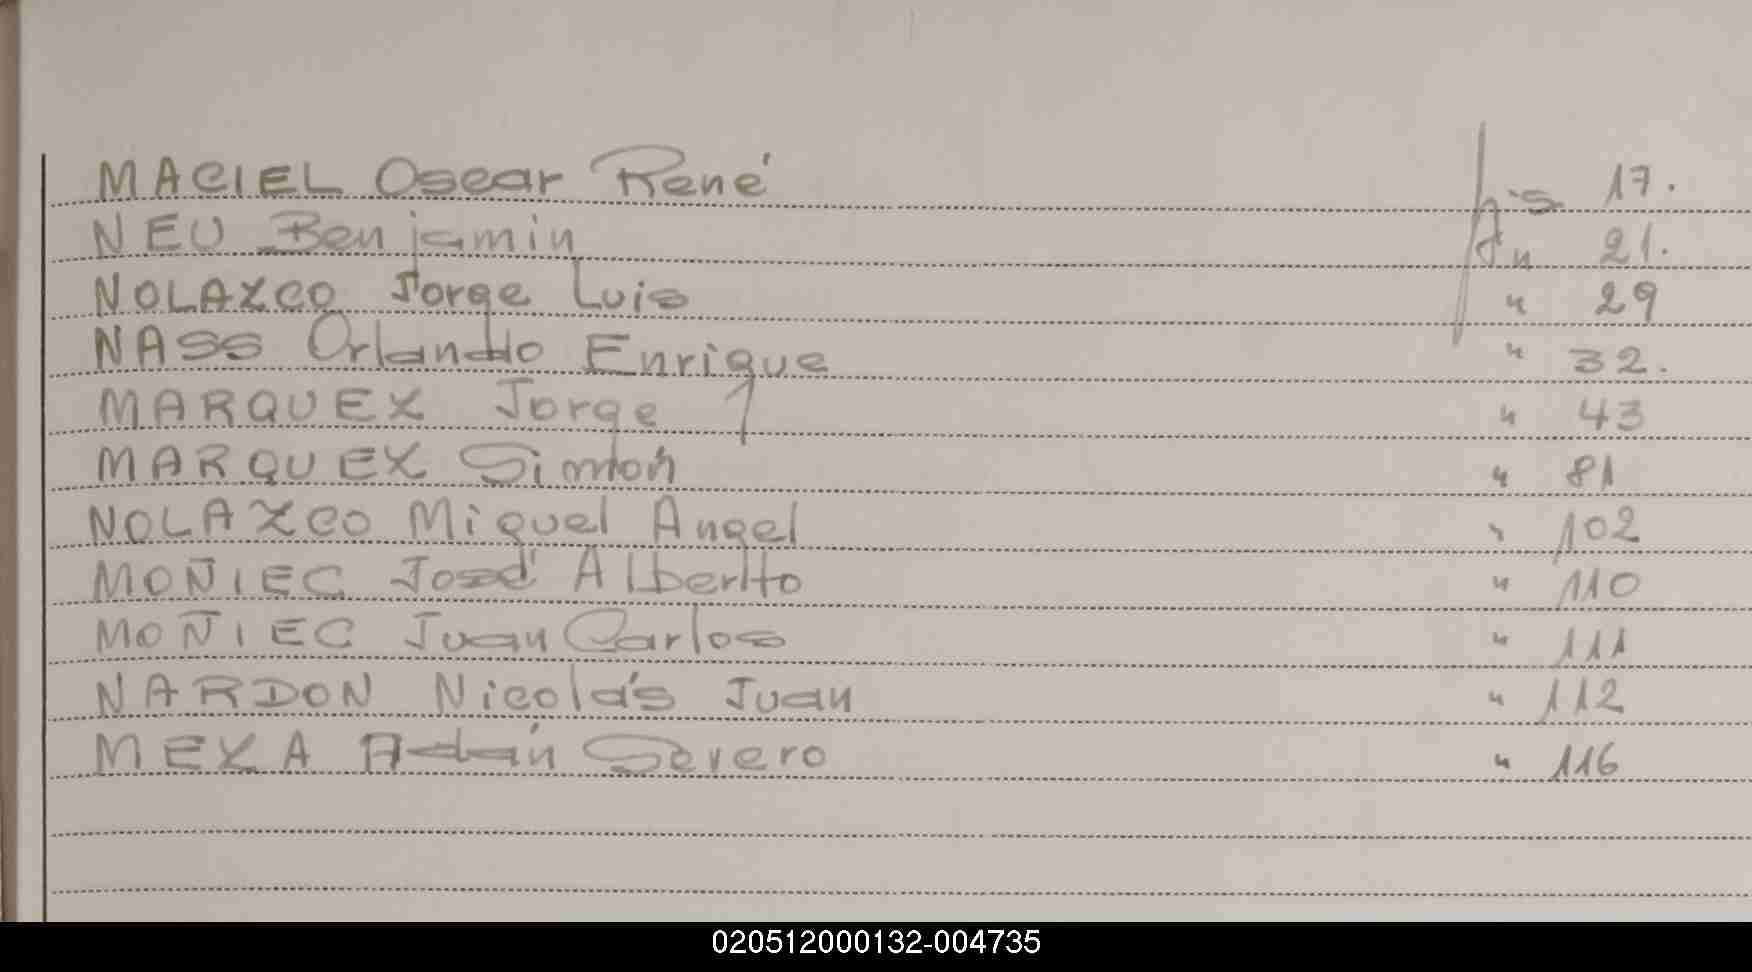 MACIEL Oscar René fjs 17.
NEU Benjamin " 21.
NOLAZCO Jorge Luis " 29
NASS Orlando Enrique " 32.
MARQUEZ Jorge " 43
MARQUEZ Simón " 81
NOLAZCO Miguel Angel " 102
MOÑIEC José Alberto " 110
MOÑIEC Juan Carlos " 111
NARDON Nicolás Juan " 112
MEZA Adán Severo " 116
020512000132-004735